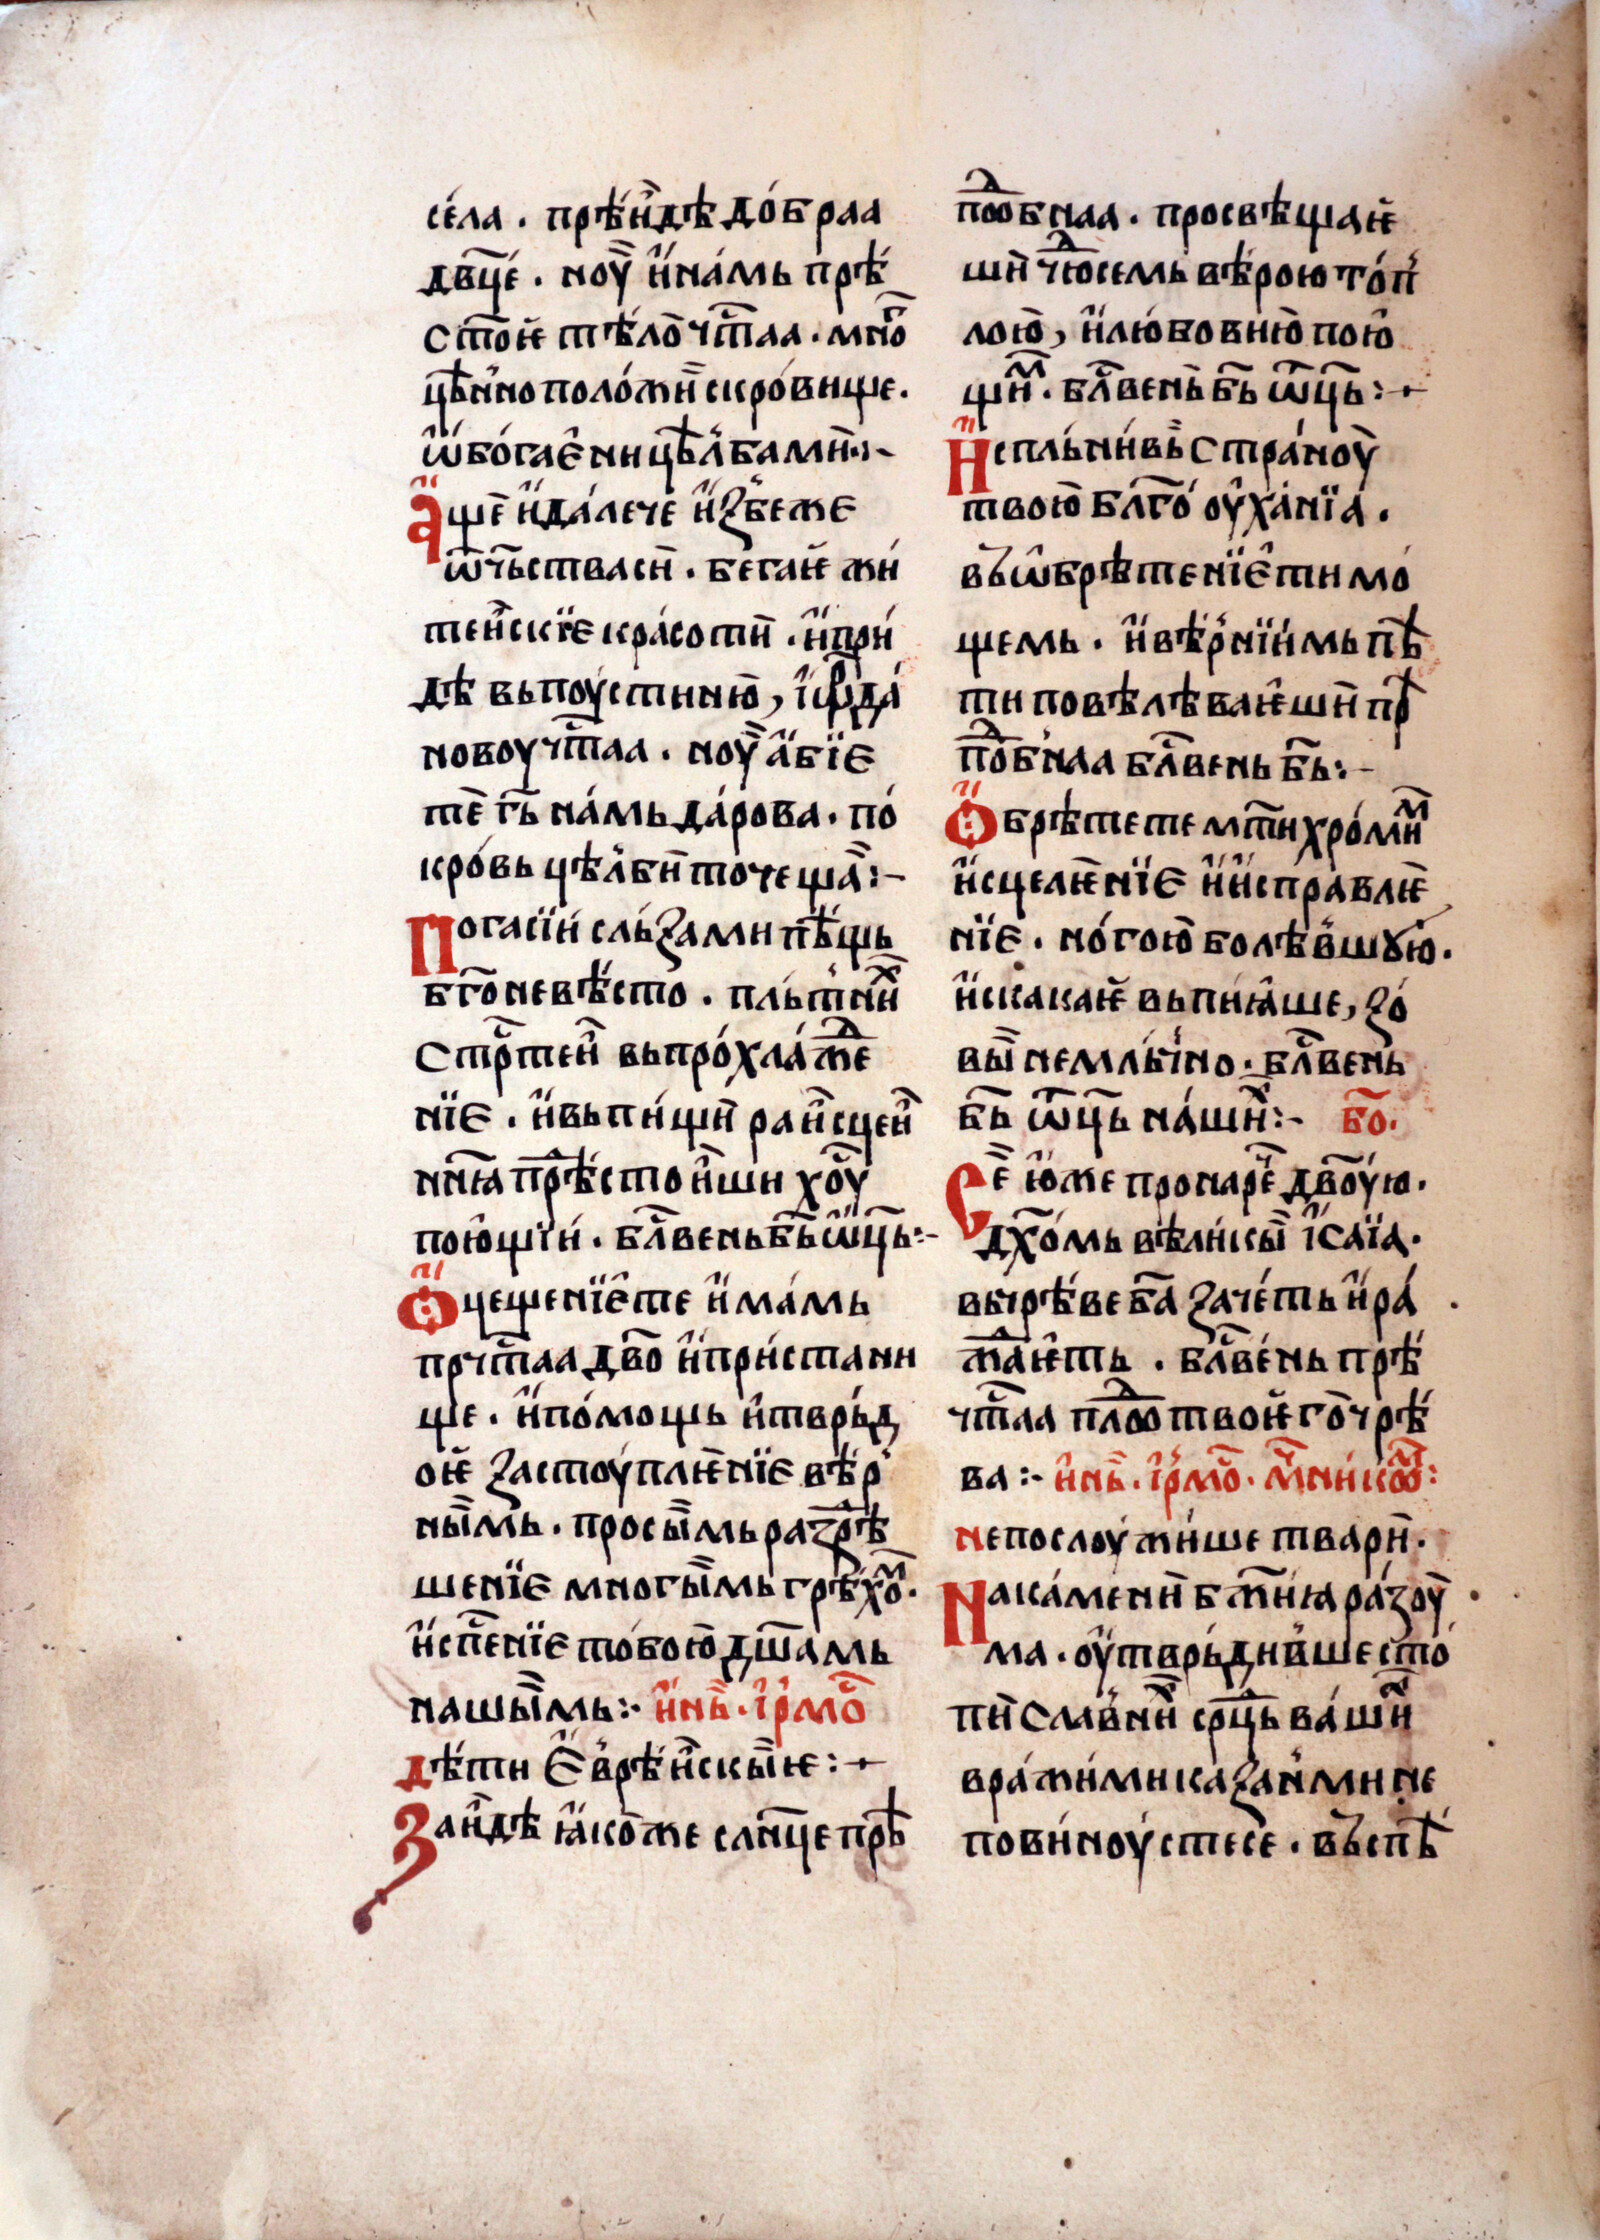 се́ла · прѣ́и҆дѣ до́браа
дв҃це́ · ноу̀ и҆ на́мь прѣ́
ст҃ое тѣ́ло чт҃аа · мно́г
цѣ́нно поло́жи съкро́вище ·
ѡ҆бога́ени цѣл҆ба́ми :~
а҆ще и҆ дале́че и҆збеже
ѿчьства си · бегае жи
те́искіе красоти · и҆ при́
дѣ вь поу́стиню , іѡрда́
нову чт҃аа · ноу̀ а҆біе
те г҃ь на́мь да́рова · по́
кро́вь цѣл҆би точеща :~
Погасїи сльзами пѣ́щь
бг҃оневѣ́сто · пль́тни́х
стр҃теи вь прохлажде
нїе · и҆ вьпи́щи ра́исцеи
ннꙗ прѣ́стои҆ши хо҃у
пою́щїи · бл҃вень б҃ь ѡ҃ць :~
Ѻ҆цещенїе те и҆мамь
прчт҃аа дв҃о и҆ при́стани
ще · и҆ по́мощь и҆ тврь́д
ое застоу́пленїе вѣ́р
нымь · просымь разрѣ́
шенїе многымь грѣхо́м ·
и҆ сп҃енїе то́бою дш҃амь
нашымь :· и҆нь · і҆рмо́с
дѣти е҆врѣ́искые :~
За́идѣ ꙗ҆коже сл҃нце прѣ́
пⷣобнаа · просвѣщае
ши чⷣосемь вѣ́рою то́п
лою , и҆ лю́бовню пою́
щи́м · бл҃вень б҃ь ѡ҃ць :~
И҆спль́нивь страноу̀
твою бл҃го оу҆ха́нїа ·
въ ѡ҆брѣтенїе ти мо́
щемь · и҆ вѣ́рнїимь пѣ́
ти повѣлѣваеши пр
пⷣобнаа бл҃вень б҃ь :~
Ѻ҆брѣтете мт҃и хро́ми́м
и҆сцеленїе и҆ и҆справле
нїе · но́гою болѣв҆шꙋю ·
и҆ скакае вьпиꙗше , зо́
вы немлъ́чно · бл҃вень
б҃ь ѡ҃ць на́ши́х :~ бо҃ ·
Се ю҆же пронаре́ дв҃оую ·
дх҃омь вѣли́кы і҆саїа ·
въчрѣ́ве б҃а заче́ть и҆ ра́
ждаеть · бл҃ве́нь прѣ́
чт҃аа плⷣо твоего чрѣ́
ва :~ и҆нь · і҆рмо́с · мⷱ҇ніком :
непослоу́жише твари ·
На ка́мени бж҃иꙗ ра́зоу
ма · оу҆тврь́див҆ше сто́
пи слав҆ни́х ср҃ць ва́ши́х
вра́жими каза́нми не
пови́ноустесе · въспѣ́